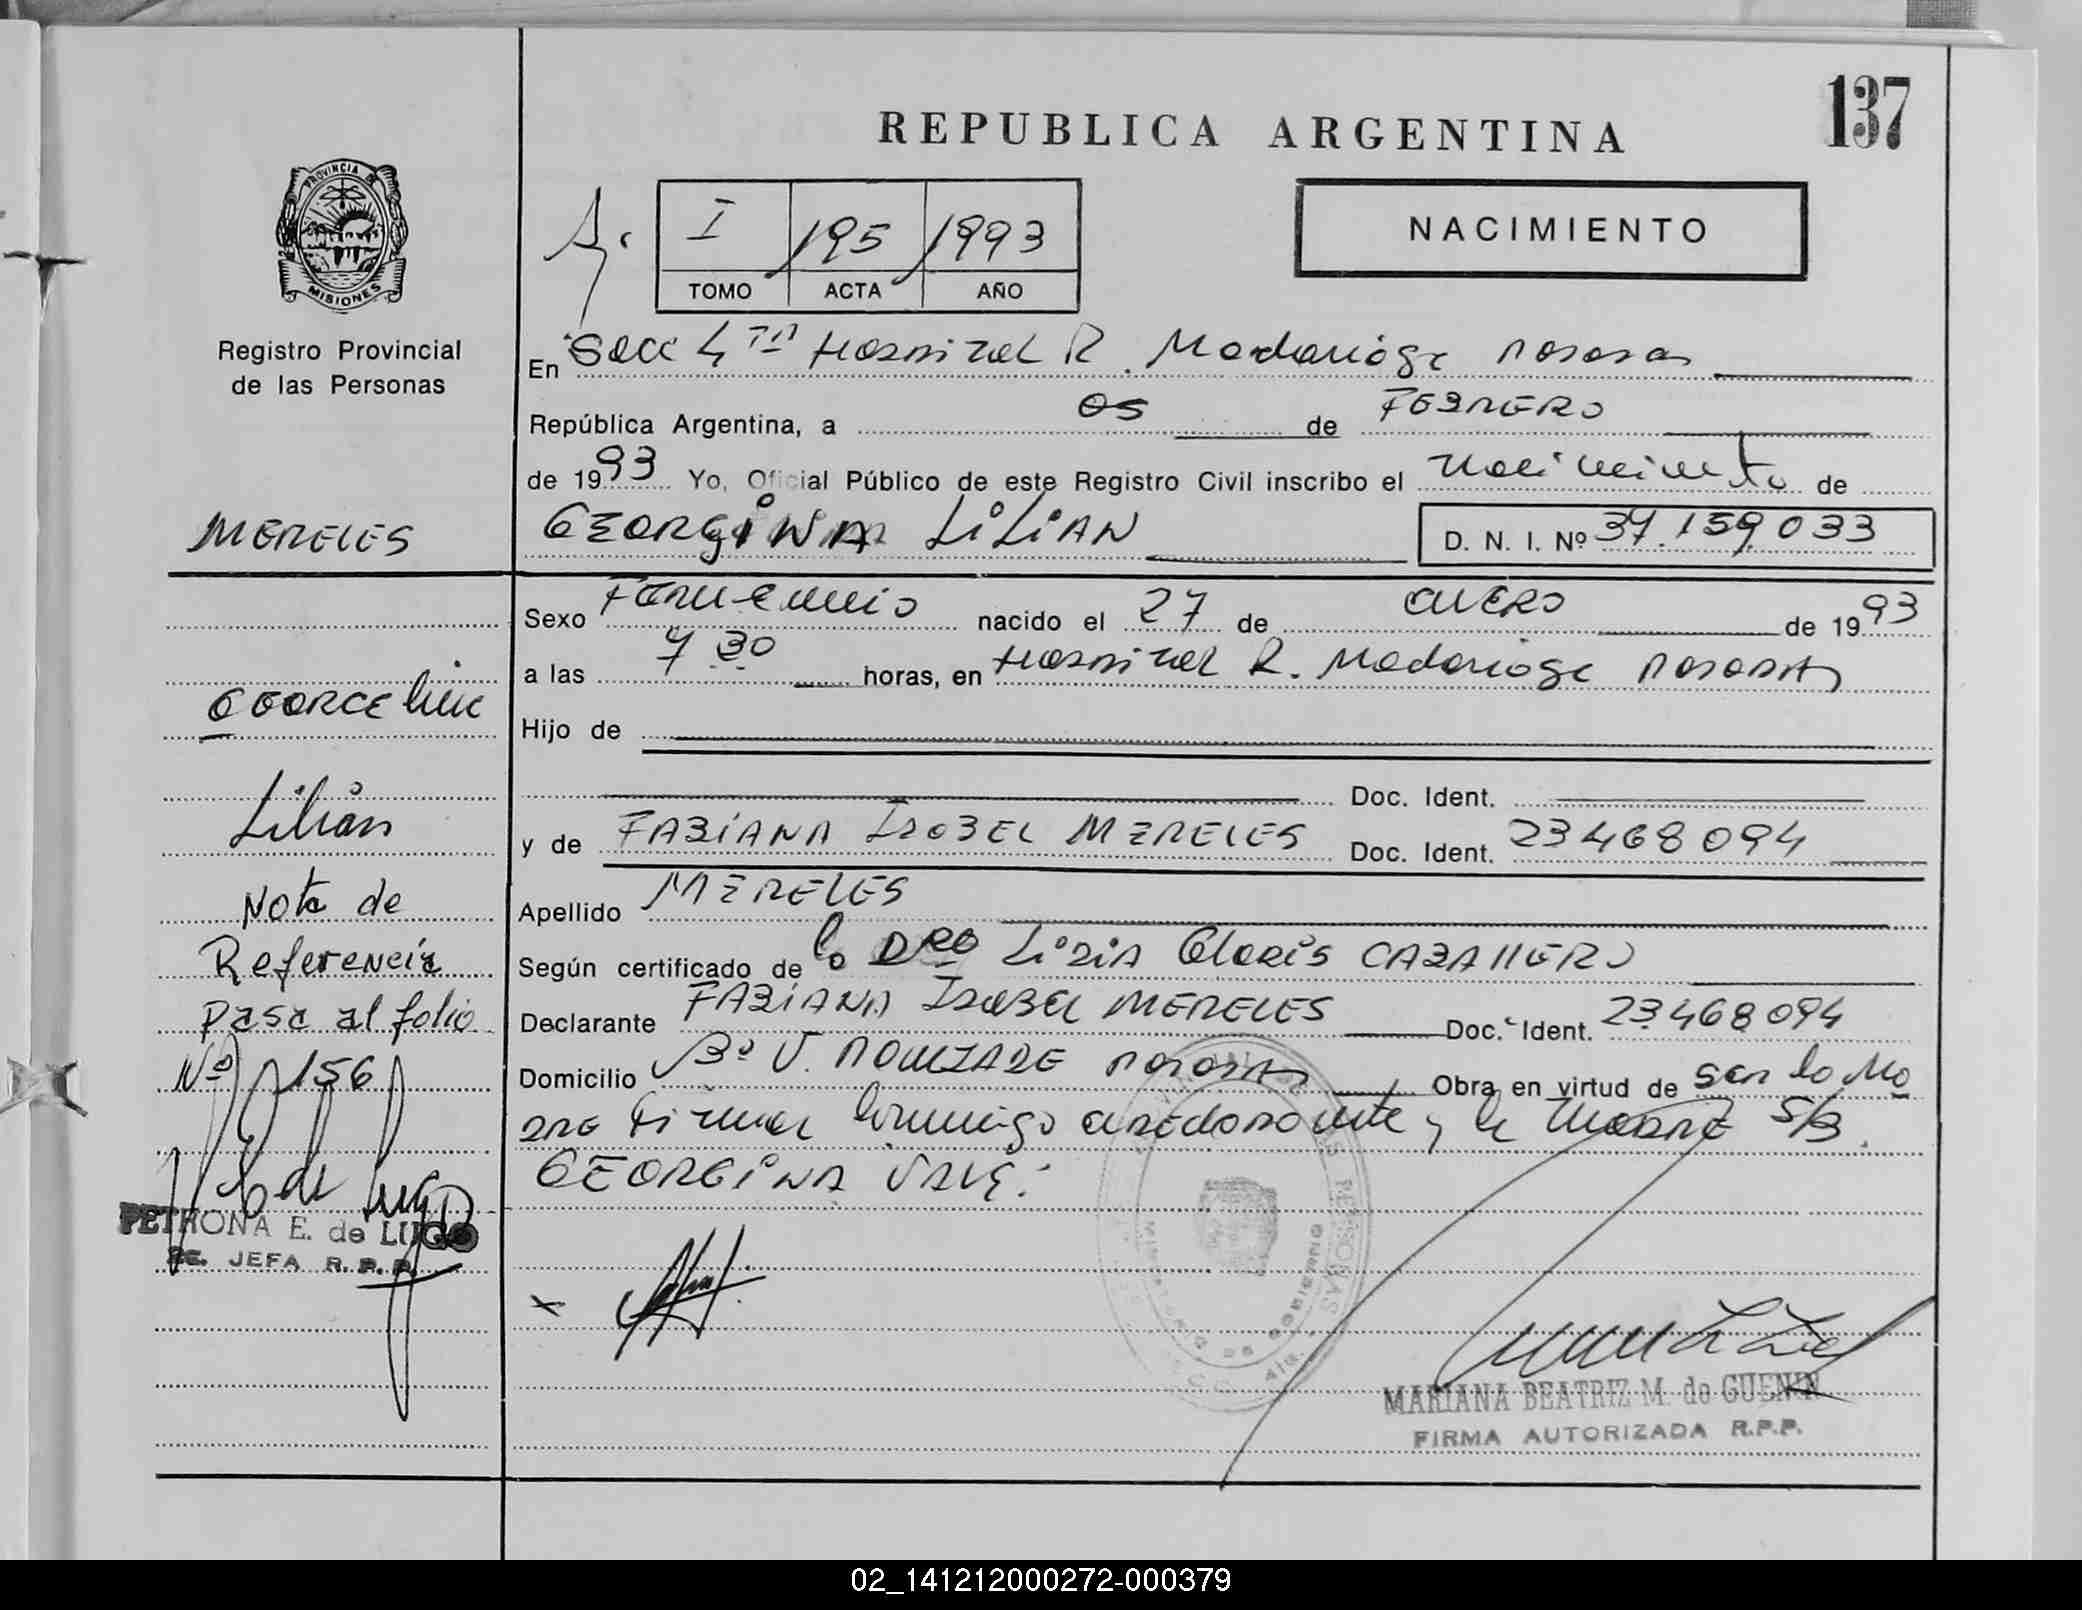 137
REPUBLICA ARGENTINA
PROVINCIA DE
MISIONES
Registro Provincial
de las Personas
I 195 1993
TOMO ACTA AÑO
NACIMIENTO
En Secc 4ta Hospital R. Madariaga Posadas
República Argentina, a 05 de FEBRERO
de 1993 Yo, Oficial Público de este Registro Civil inscribo el nacimiento de
MERELES
GEORGINA LILIAN D. N. I. Nº 37.159.033
Sexo Femenino nacido el 27 de ENERO de 1993
a las 7 30 horas, en Hospital R. Madariaga Posadas
Hijo de
Doc. Ident.
y de FABIANA ISABEL MERELES Doc. Ident. 23468094
Apellido MERELES
Según certificado de la DRA LIDIA GLORIS CABALLERO
Declarante FABIANA ISABEL MERELES Doc. Ident. 23.468.094
Domicilio Bº V. Posadas Obra en virtud de ser la Ma
dre Firman conmigo y la MADRE S/B.
GEORGINA VALE:
Lilian
Nota de
Referencia
Pasa al folio
Nº 156
PETRONA E. de LUGO
JEFA R. P. P.
MINISTERIO DE GOBIERNO
MARIANA BEATRIZ M. de GUENIN
FIRMA AUTORIZADA R.P.P.
02_141212000272-000379